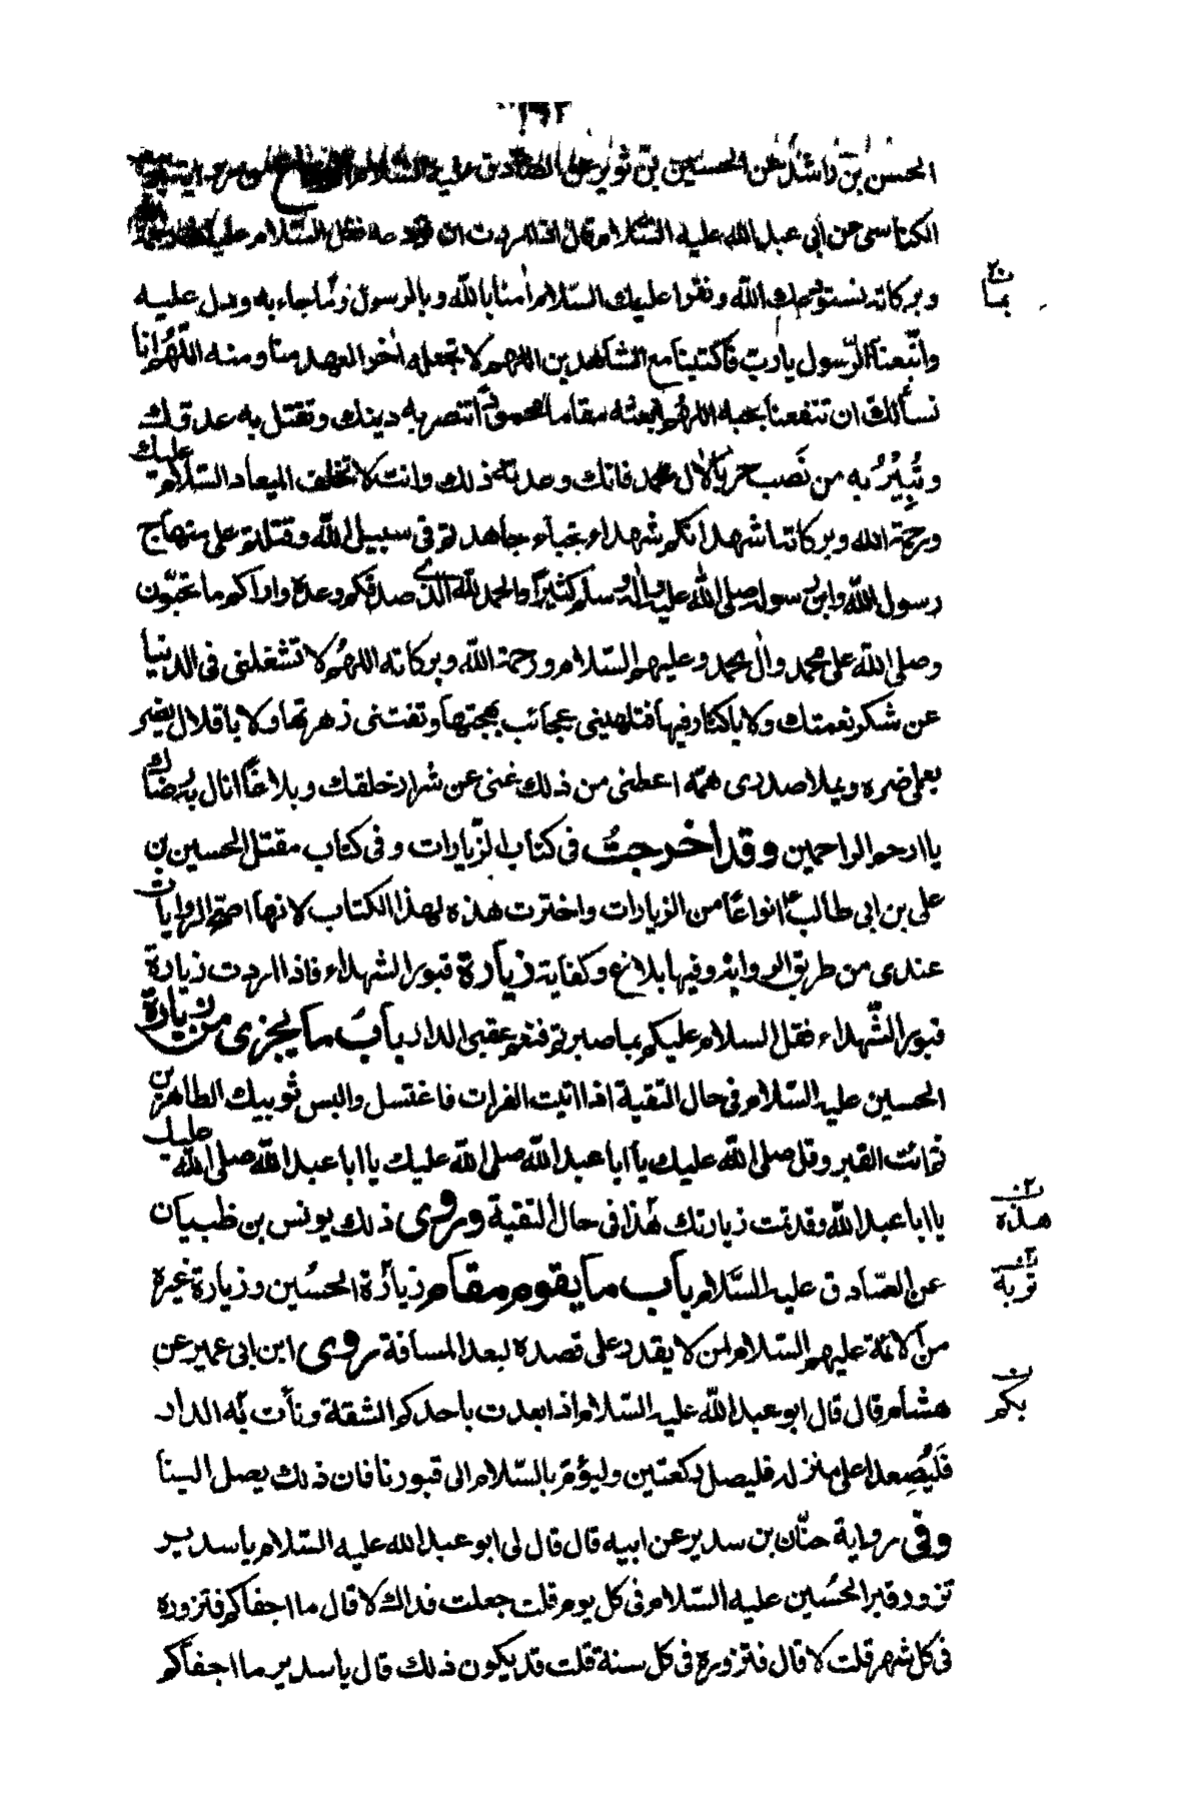 ١٦٢
الحسن بن راشد عن الحسين بن ثوير عن الصادق عليه السلام
الكناسى عن ابى عبد الله عليه السّلام قال اذا اردت ان تودعه فقل السّلام عليك ورحمة
وبركاته نستودعك الله ونقرا عليك السّلام اٰمنا بالله وبالرسول وبما جاء به ودل عليه
واتّبعنا الرّسول يا ربّ فاكتبنا مع الشاهدين اللهم لا تجعله اٰخر العهد منا ومنه اللّهُم انا
نسألك ان تنفعنا بحبه اللهُم ابعثه مقاما محمودا تنصر به دينك وتقتل به عدوك
وتُبِيْرُ به من نَصب حربًا لاٰل محمد فانك وعدته ذلك وانت لا تخلف الميعاد السّلام عليك
ورحمة الله وبركاته اشهد انكم شهداء نجباء جاهدتم فى سبيل الله وقتلتم على منهاج
رسول الله وابن رسوله صلى الله عليه واٰله وسلم كثيرًا والحمد لله الذى صدقكم وعده واراكم ما تحبّون
وصلى الله على محمد واٰل محمد وعليهم السّلام ورحمة الله وبركاته اللهُم لا تشغلنى فى الدنيا
عن شكر نعمتك ولا باكثار فيها فتلهينى عجائب بهجتها وتفتنى زهرتها ولا باقلال يضر
بعملى ضره ويملا صدرى همّه اعطنى من ذلك غنى عن شرار خلقك وبلاغًا انال به رضاك
يا ارحم الراحمين وقد اخرجتُ فى كتاب الزّيارات وفى كتاب مقتل الحسين بن
على بن ابى طالب ع انواعًا من الزيارات واخترت هذه لهذا الكتاب لانها اصح الروايات
عندى من طريق الرواية وفيها بلاغ وكفاية زيارة قبور الشهداء فاذا اردت زيارة
قبور الشّهداء فقل السلام عليكم بما صبرتم فنعم عقبى الدار باب ما يجزى من زيارة
الحسين عليه السّلام فى حال التقية اذا اتيت الفرات فاغتسل والبس ثوبيك الطاهرين
ثم ائت القبر وقل صلى الله عليك يا ابا عبد الله صلى الله عليك يا ابا عبد الله صلى الله عليك
يا ابا عبد الله وقد تمت زيارتك هٰذا فى حال التقية وروى ذلك يونس بن ظبيان
عن الصّادق عليه السَّلام باب ما يقوم مقام زيارة الحسُين وزيارة غيره
من الائمة عليهم السّلام لمن لا يقدر على قصده لبعد المسافة روى ابن ابى عمير عن
هشام قال قال ابو عبد الله عليه السّلام اذا بعدت باحدكم الشقة ونأت به الدار
فَليُصِعد اعلى منزله فليصل ركعتين وليؤمّ بالسّلام الى قبورنا فان ذلك يصل الينا
وفى رواية حنّان بن سدير عن ابيه قال قال لى ابو عبد الله عليه السّلام يا سدير
تزور قبر الحسُين عليه السّلام فى كل يوم قلت جعلت فداك لا قال ما اجفاكم فتزوره
فى كل شهر قلت لا قال فتزوره فى كل سنة قلت قد يكون ذلك قال يا سدير ما اجفاكم
بما
هذه
توبة
بكم